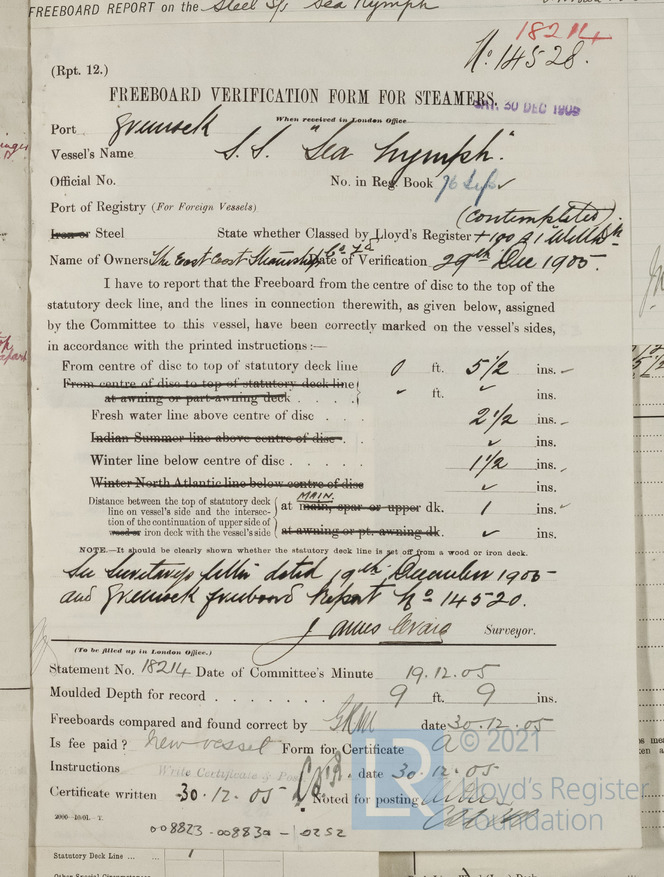 FREEBOARD REPORT on the Steel S/S Sea Nymph
18214
No. 14528.
(Rpt. 12.)
FREEBOARD VERIFICATION FORM FOR STEAMERS.
SAT. 30 DEC 1905
When received in London Office
Port Greenock
Vessel's Name S.S. "Sea Nymph"
Official No. No. in Reg. Book 76 Sup
Port of Registry (For Foreign Vessels) (Contemplated)
Iron or Steel State whether Classed by Lloyd's Register +100 A1
Name of Owners The East Coast Steamship Co. Ltd Date of Verification 29th Dec 1905.
I have to report that the Freeboard from the centre of disc to the top of the
statutory deck line, and the lines in connection therewith, as given below, assigned
by the Committee to this vessel, have been correctly marked on the vessel's sides,
in accordance with the printed instructions :—
From centre of disc to top of statutory deck line 0 ft. 5 1/2 ins.
From centre of disc to top of statutory deck line
at awning or part-awning deck . . . . ft. ins.
Fresh water line above centre of disc . . . 2 1/2 ins.
Indian Summer line above centre of disc . ins.
Winter line below centre of disc . . . . . 1 1/2 ins.
Winter North Atlantic line below centre of disc
Distance between the top of statutory deck
line on vessel's side and the intersec-
tion of the continuation of upper side of
wood or iron deck with the vessel's side
MAIN.
at main, spar or upper dk. 1 ins.
at awning or pt. awning dk. ins.
NOTE.—It should be clearly shown whether the statutory deck line is set off from a wood or iron deck.
See Secretary's letter dated 19th December 1905
and Greenock freeboard Report No 14520.
James Craig Surveyor.
(To be filled up in London Office.)
Statement No. 18214 Date of Committee's Minute 19.12.05
Moulded Depth for record . . . . . . . 9 ft. 9 ins.
Freeboards compared and found correct by GRM date 30.12.05
Is fee paid? New vessel Form for Certificate a
Instructions Write Certificate & date 30.12.05
Certificate written 30.12.05 Noted for posting
2000—10/01.—T.
008823-008830-0252
© 2021
Lloyd's Register
Foundation
LR
Statutory Deck Line ... ...